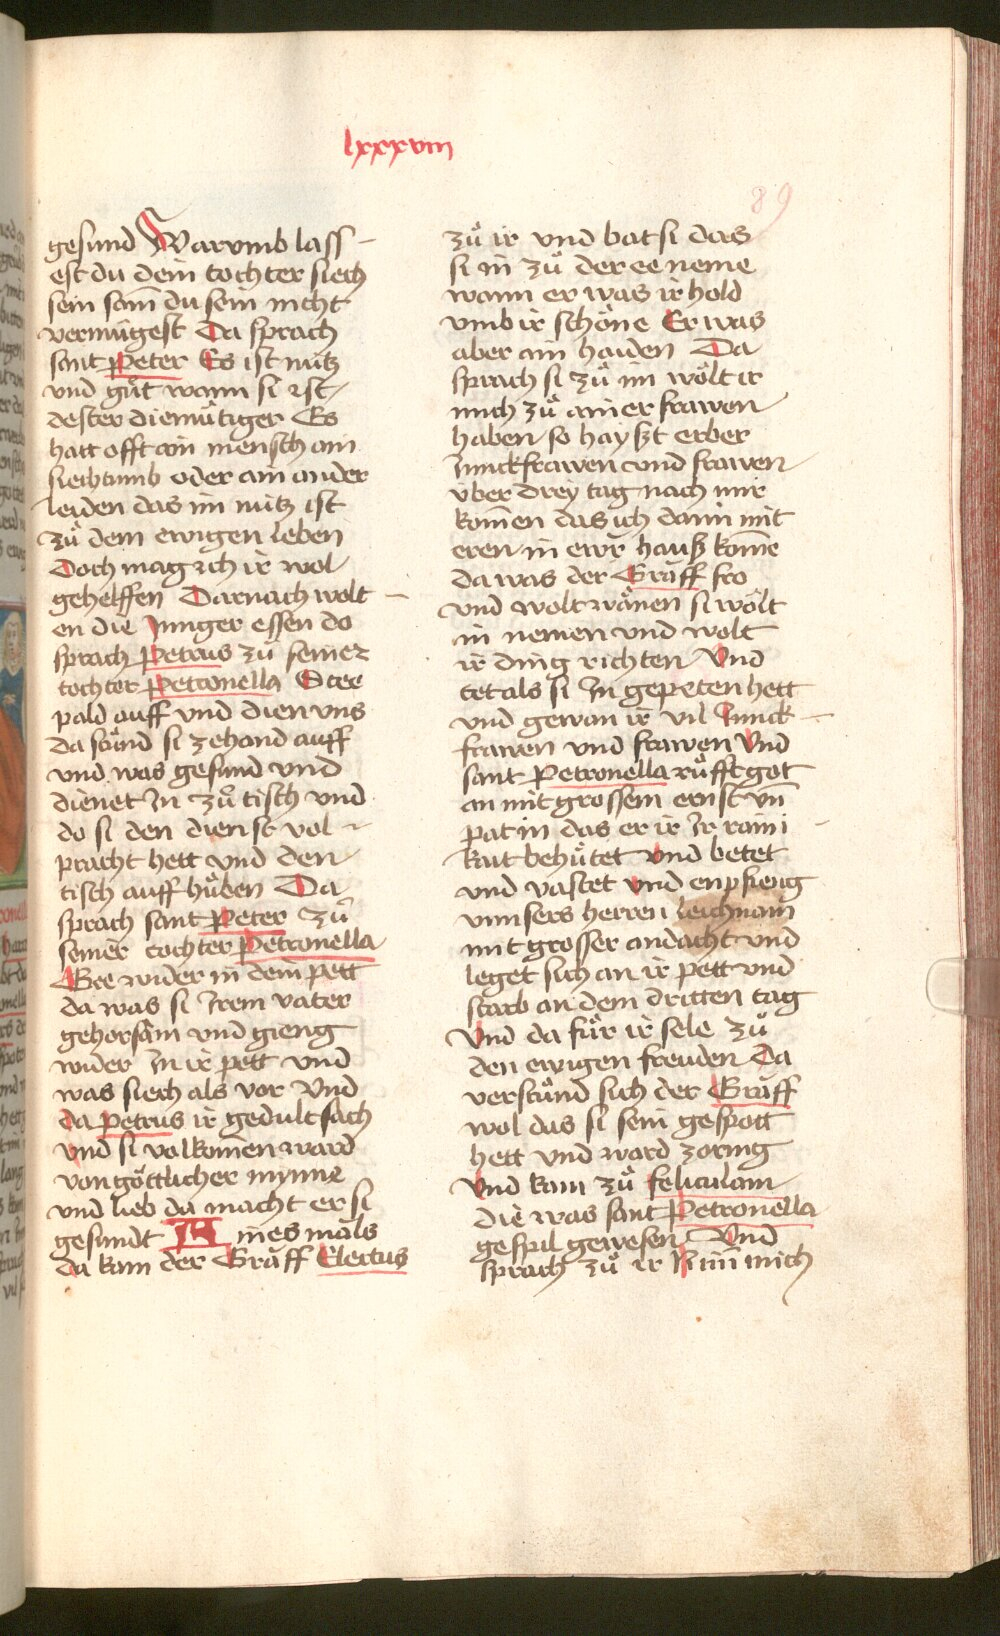 lxxxviii
89
gesund Warvmb lass-
est du dein tochter siech
sein sam̄ du sein nicht
vermügest Da sprach
sant Peter Es ist nütz
vnd gůt wann si ist
dester diemütiger Es
hatt offt ain mensch ain
siechtumb oder ain ander
leiden das im nütz ist
zů dem ewigen leben
Doch mag ich ir wol
gehelffen Darnach wolt-
en die Junger essen do
sprach Petrus zů seiner
tochter Petronella Stee
pald auff vnd dien vns
da stůnd si zehand auff
vnd was gesund vnd
dienet In zů tisch vnd
do si den dienst vol-
pracht hett vnd den
tisch auff hůben Da
sprach sant Peter zů
seiner tochter Petronella
Gee wider in dein pett
da was si Irem vater
gehorsam vnd gieng
wider In ir pett vnd
was siech als vor Vnd
da Petrus ir gedult sach
vnd si volkomen ward
von göttlicher mynne
vnd lieb da macht er si
gesundt Aines mals
da kam der Gräff Elertus
zů ir vnd bat si das
si in zů der ee neme
wann er was ir hold
vmb ir schöne Er was
aber ain haiden Da
sprach si zů im wölt ir
mich zů ainer frawen
haben so hayszt erber
Junckfrawen vnd frawen
über drey tag nach mir
kom̄en das ich dann mit
eren in ewr hausz kom̄e
da was der Gräff fro
vnd wolt wänen si wölt
in nemen vnd wolt
ir ding richten Vnd
tet als si In gepeten hett
vnd gewan ir vil Junck-
frawen vnd frawen Vnd
sant Petronella růfft got
an mit grossem ernst vn̄
pat in das er ir Ir raini-
kait behůtet vnd betet
vnd vastet vnd enpfieng
vnnsers herren leichnam
mit grosser andacht vnd
leget sich an ir pett vnd
starb an dem dritten tag
Vnd da fůr ir sele zů
den ewigen freuden Da
verstůnd sich der Gräff
wol das si sein gespott
hett vnd ward zornig
Vnd kam zů feliculam
die was sant Petronella
gespil gewesen Vnd
sprach zů ir Nim̄ mich